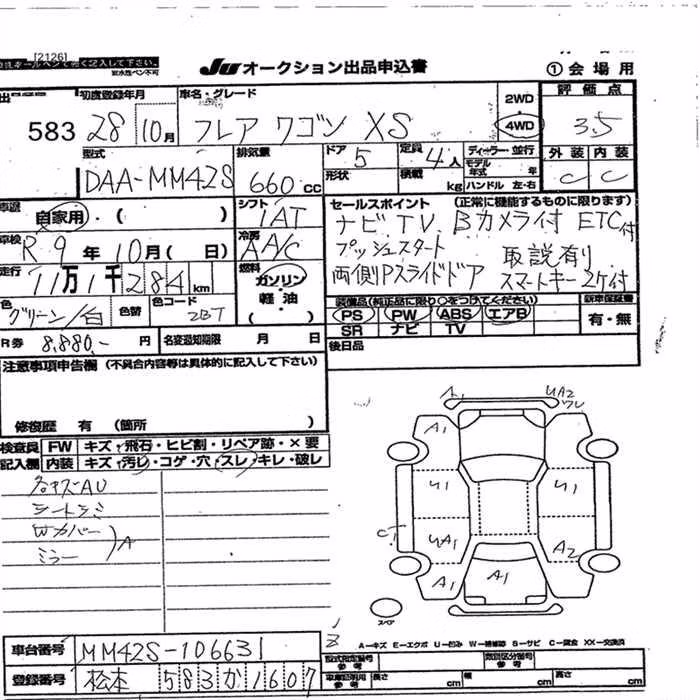 [2126]
JU オークション出品申込書 ①会場用
初度登録年月 車名・グレード 2WD 評価点
583 28 10月 フレアワゴン XS 4WD 3.5
型式 排気量 ドア 定員 ディーラー・並行 外装 内装
DAA-MM42S 660cc 5 4人 モデル年式 年 C C
形状 積載 kg ハンドル 左・右
車歴 自家用・( ) シフト IAT
セールスポイント (正常に機能するものに限ります)
ナビ TV Bカメラ付 ETC付
車検 R9年10月( 日) 冷房 AAC
プッシュスタート 取説有り
走行 11万1千284km 燃料 ガソリン・軽油・( )
両側Pスライドドア スマートキー2ケ付
色 グリーン/白 色替 色コード ZBT
装備品(純正品に限り○をつけてください) 新車保証書
PS PW ABS エアB 有・無
SR ナビ TV
R券 8,880.- 円 名変通知期限 月 日 後日品
注意事項申告欄 (不具合内容等は具体的に記入して下さい)
修復歴 有 (箇所 )
検査員 FW キズ・飛石・ヒビ割・リペア跡・×要
記入欄 内装 キズ・汚レ・コゲ・穴・スレ・キレ・破レ
各キズAU
シートシミ
Wカバー
ミラー A
A1 UA2
ワレ
A1
U1 U1
CT
UA1 A2
A1 A1
スペア
A−キズ E−エクボ U−凹み W−補修跡 S−サビ C−腐食 XX−交換済
車台番号 MM42S-106631
型式指定番号 参考 類別区分番号 参考
登録番号 松本 583 か 1607
車庫証明用 参考 長さ cm 幅 cm 高さ cm